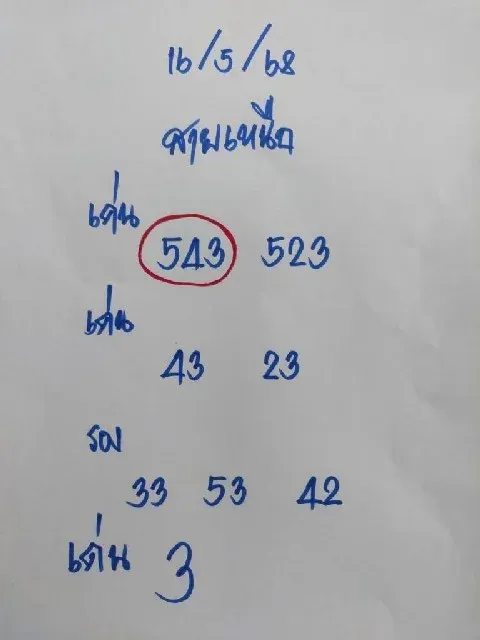 16/5/68
สายเหนือ
เด่น
543 523
เด่น
43 23
รอง
33 53 42
เด่น 3